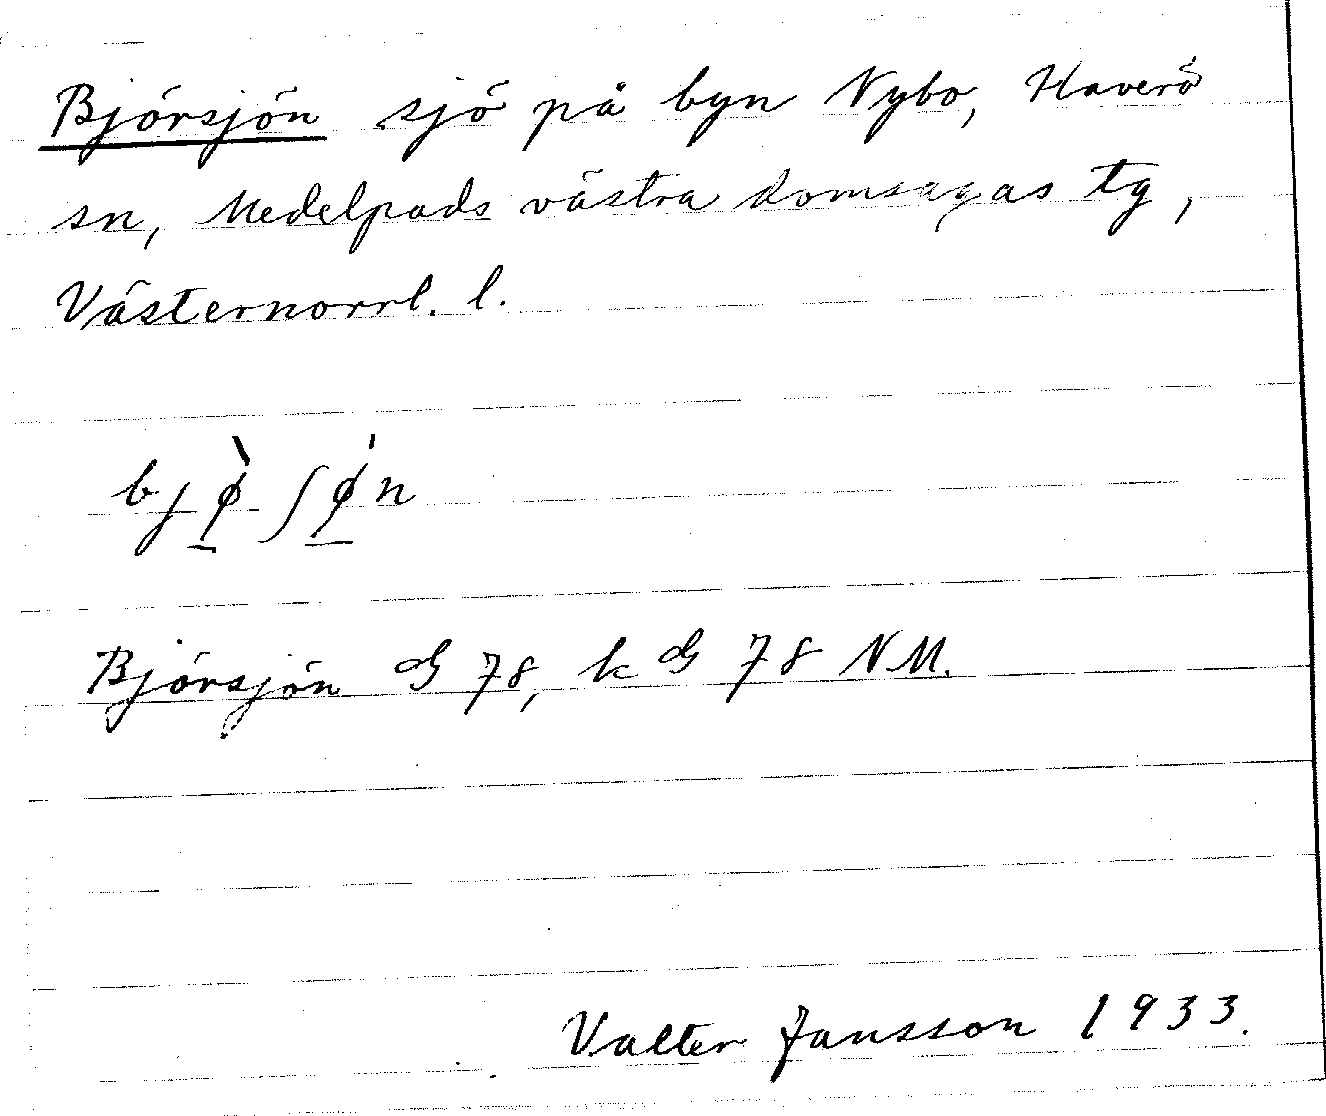 Björsjön sjö på byn Nybo, Haverö
sn, Medelpads västra domsagas tg,
Västernorrl. l.
bjø̀ ʃǿn
Björsjön GS 78, k GS 78 NM.
Valter Jansson 1933.